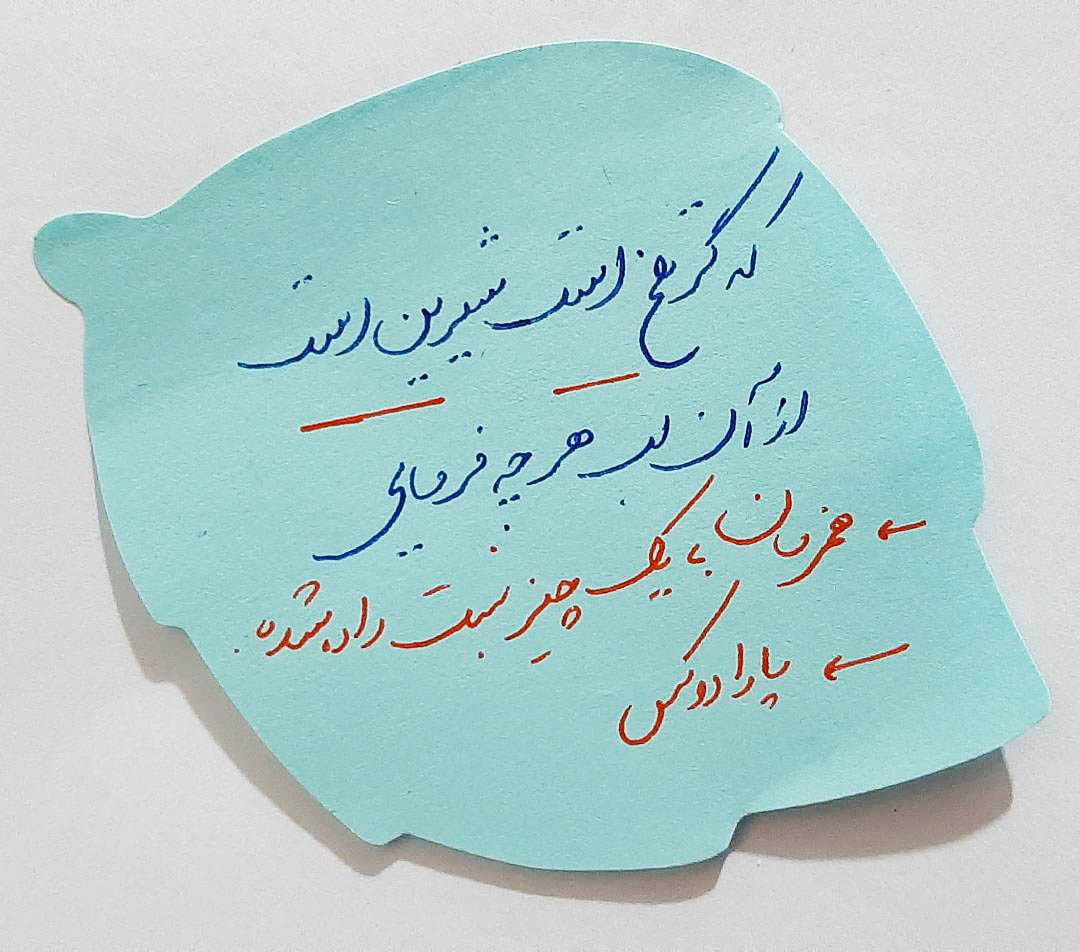 که گر تلخ است شیرین است
از آن لب هر چه فرمایی
← همزمان با یک چیز نسبت داده شده.
← پارادوکس